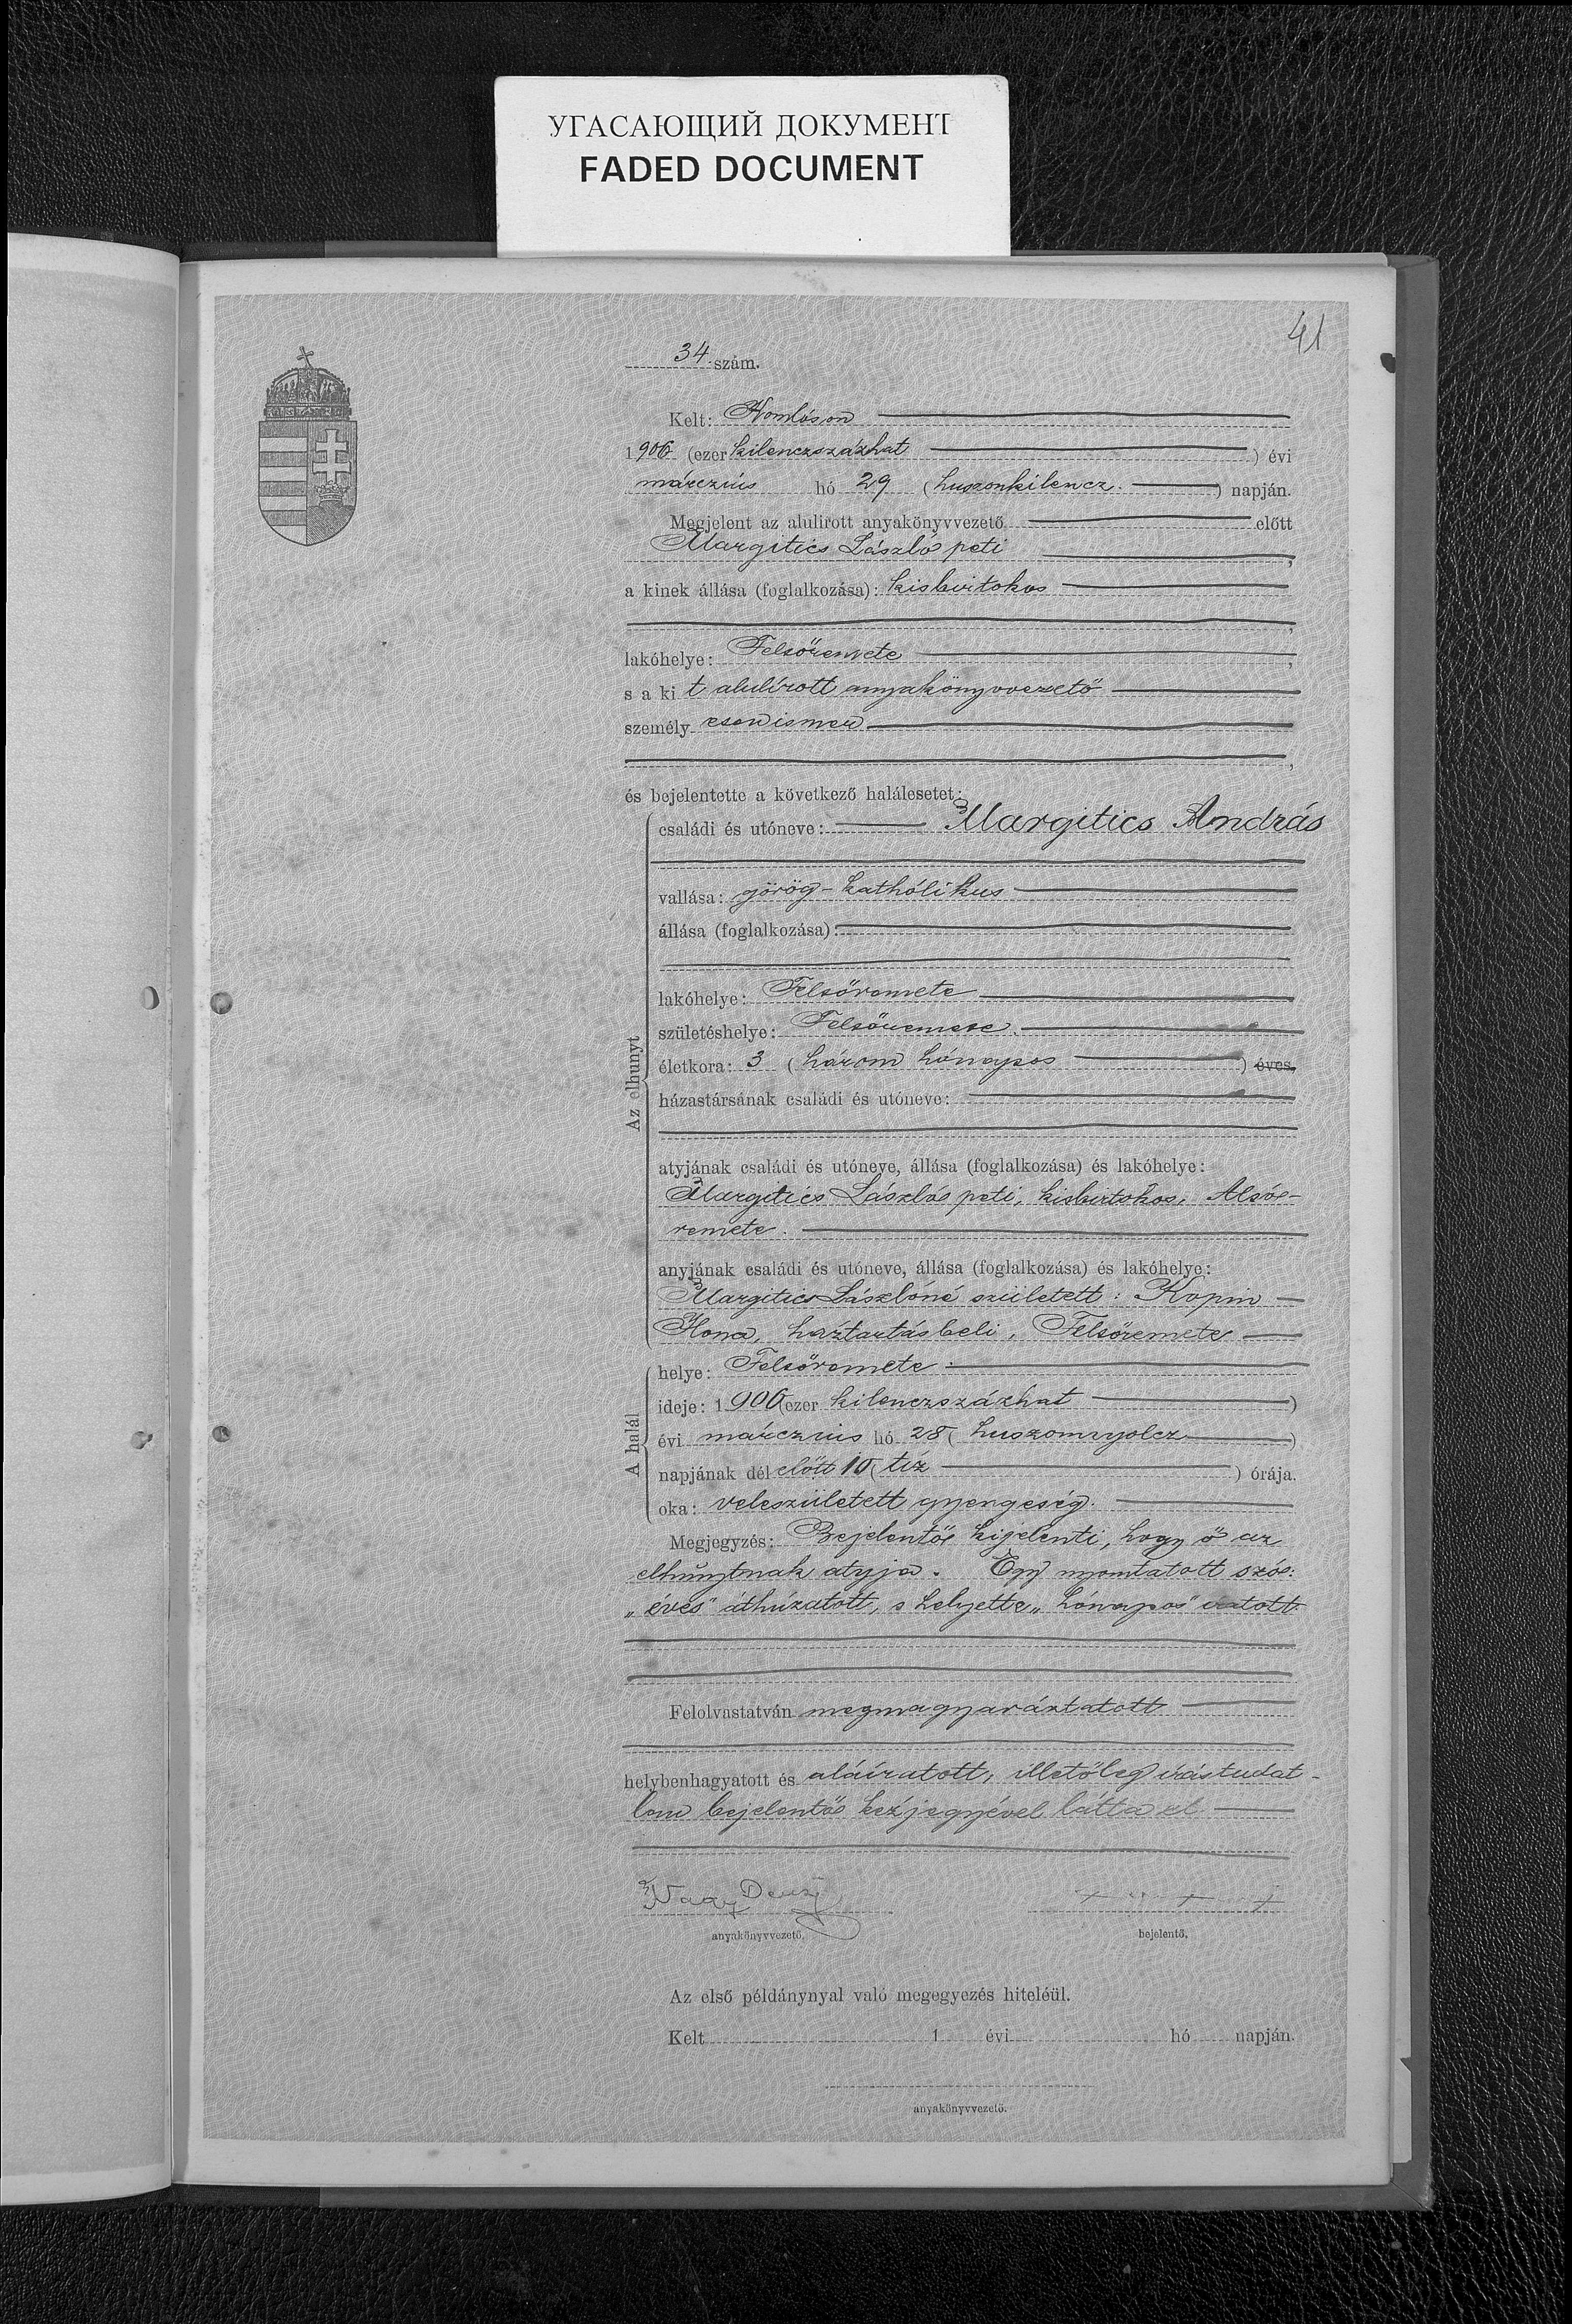 УГАСАЮЩИЙ ДОКУМЕНТ
FADED DOCUMENT
41
34. szám.
Kelt: Komlóson
1906 (ezer kilenczszázhat) évi
márczius hó 29 (huszonkilencz.) napján.
Megjelent az alulirott anyakönyvvezető előtt
Margitics László peti,
a kinek állása (foglalkozása): kisbirtokos
lakóhelye: Felsőremete,
s a kit alulírott anyakönyvvezető
személyesen ismer
és bejelentette a következő halálesetet:
Az elhunyt
családi és utóneve: Margitics András
vallása: görög-kathólikus
állása (foglalkozása):
lakóhelye: Felsőremete
születéshelye: Felsőremete.
életkora: 3 (három hónapos) éves,
házastársának családi és utóneve:
atyjának családi és utóneve, állása (foglalkozása) és lakóhelye:
Margitics László peti, kisbirtokos, Alsó-
remete.
anyjának családi és utóneve, állása (foglalkozása) és lakóhelye:
Margitics Lászlóné született: Kopin
Ilona, háztartásbeli, Felsőremete
A halál
helye: Felsőremete
ideje: 1906 (ezer kilenczszázhat)
évi márczius hó 28 (huszonnyolcz)
napjának dél előtt 10 (tíz) órája.
oka: veleszületett gyengeség.
Megjegyzés: Bejelentő kijelenti, hogy ő az
elhunytnak atyja. Egy nyomtatott szó:
„éves" áthúzatott, s helyette „hónapos" iratott.
Felolvastatván megmagyaráztatott
helybenhagyatott és aláíratott, illetőleg irástudat-
lan bejelentő kézjegyével látta el
Nagy
+ + +
anyakönyvvezető.
bejelentő.
Az első példánynyal való megegyezés hiteléül.
Kelt 1 évi hó napján.
anyakönyvvezető.